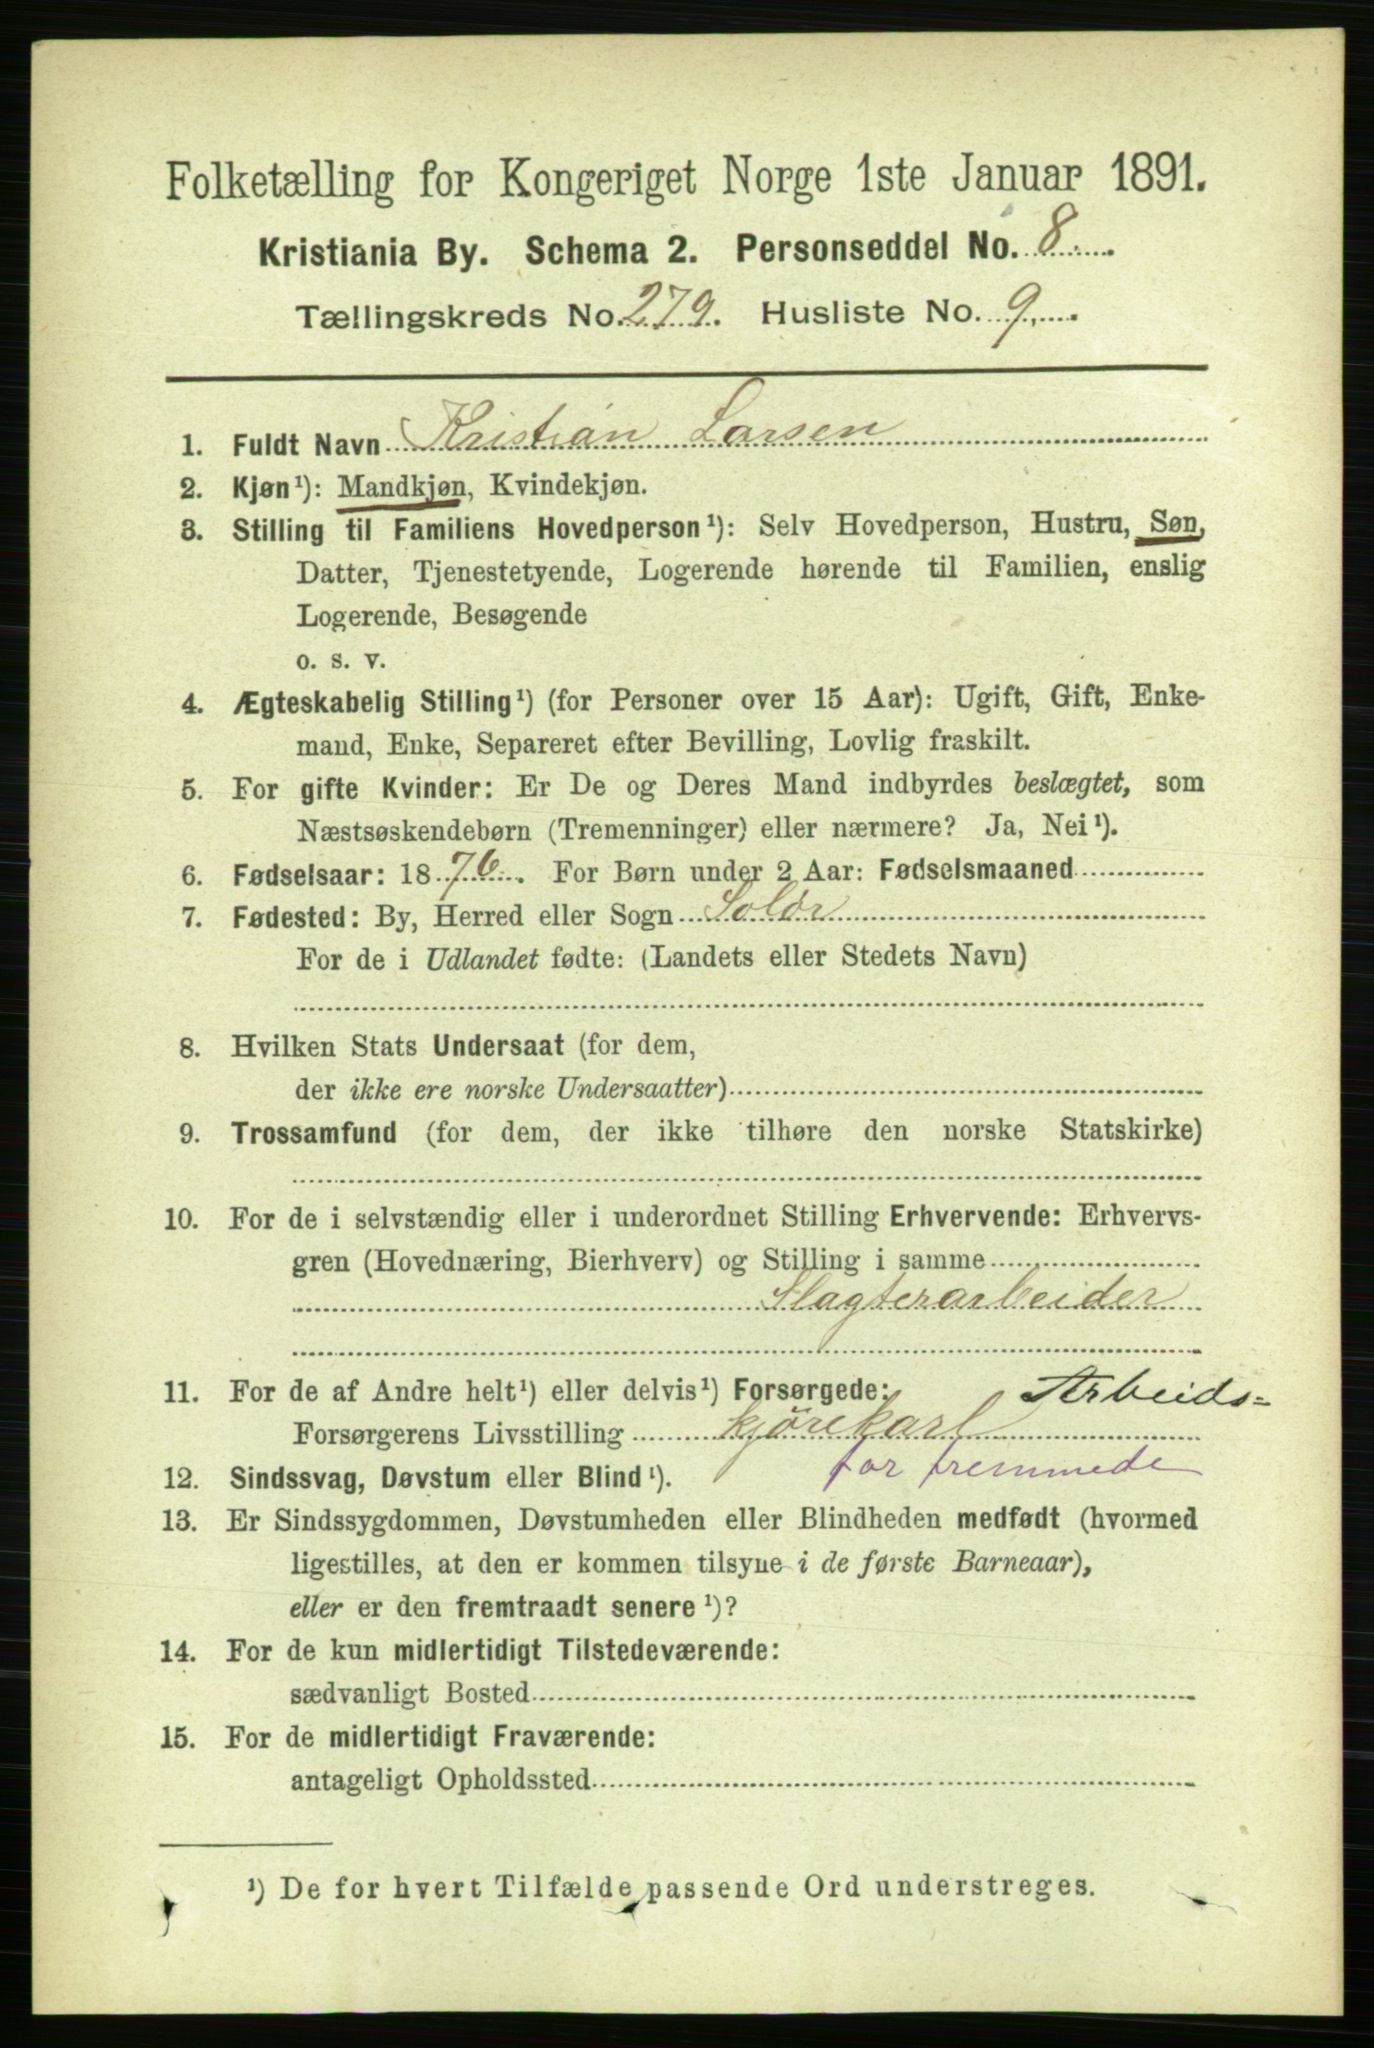 Folketælling for Kongeriget Norge 1ste Januar 1891.
Kristiania By. Schema 2. Personseddel No. 8
Tællingskreds No. 279. Husliste No. 9
1. Fuldt Navn Kristian Larsen
2. Kjøn¹): Mandkjøn, Kvindekjøn.
3. Stilling til Familiens Hovedperson¹): Selv Hovedperson, Hustru, Søn,
Datter, Tjenestetyende, Logerende hørende til Familien, enslig
Logerende, Besøgende
o. s. v.
4. Ægteskabelig Stilling¹) (for Personer over 15 Aar): Ugift, Gift, Enke-
mand, Enke, Separeret efter Bevilling, Lovlig fraskilt.
5. For gifte Kvinder: Er De og Deres Mand indbyrdes beslægtet, som
Næstsøskendebørn (Tremenninger) eller nærmere? Ja, Nei¹).
6. Fødselsaar: 1876. For Børn under 2 Aar: Fødselsmaaned
7. Fødested: By, Herred eller Sogn Solör
For de i Udlandet fødte: (Landets eller Stedets Navn)
8. Hvilken Stats Undersaat (for dem,
der ikke ere norske Undersaatter)
9. Trossamfund (for dem, der ikke tilhøre den norske Statskirke)
10. For de i selvstændig eller i underordnet Stilling Erhvervende: Erhvervs-
gren (Hovednæring, Bierhverv) og Stilling i samme
Slagterarbeider
11. For de af Andre helt¹) eller delvis¹) Forsørgede: Arbeids=
Forsørgerens Livsstilling kjørekarl
for fremmede
12. Sindssvag, Døvstum eller Blind¹).
13. Er Sindssygdommen, Døvstumheden eller Blindheden medfødt (hvormed
ligestilles, at den er kommen tilsyne i de første Barneaar),
eller er den fremtraadt senere¹)?
14. For de kun midlertidigt Tilstedeværende:
sædvanligt Bosted
15. For de midlertidigt Fraværende:
antageligt Opholdssted
¹) De for hvert Tilfælde passende Ord understreges.